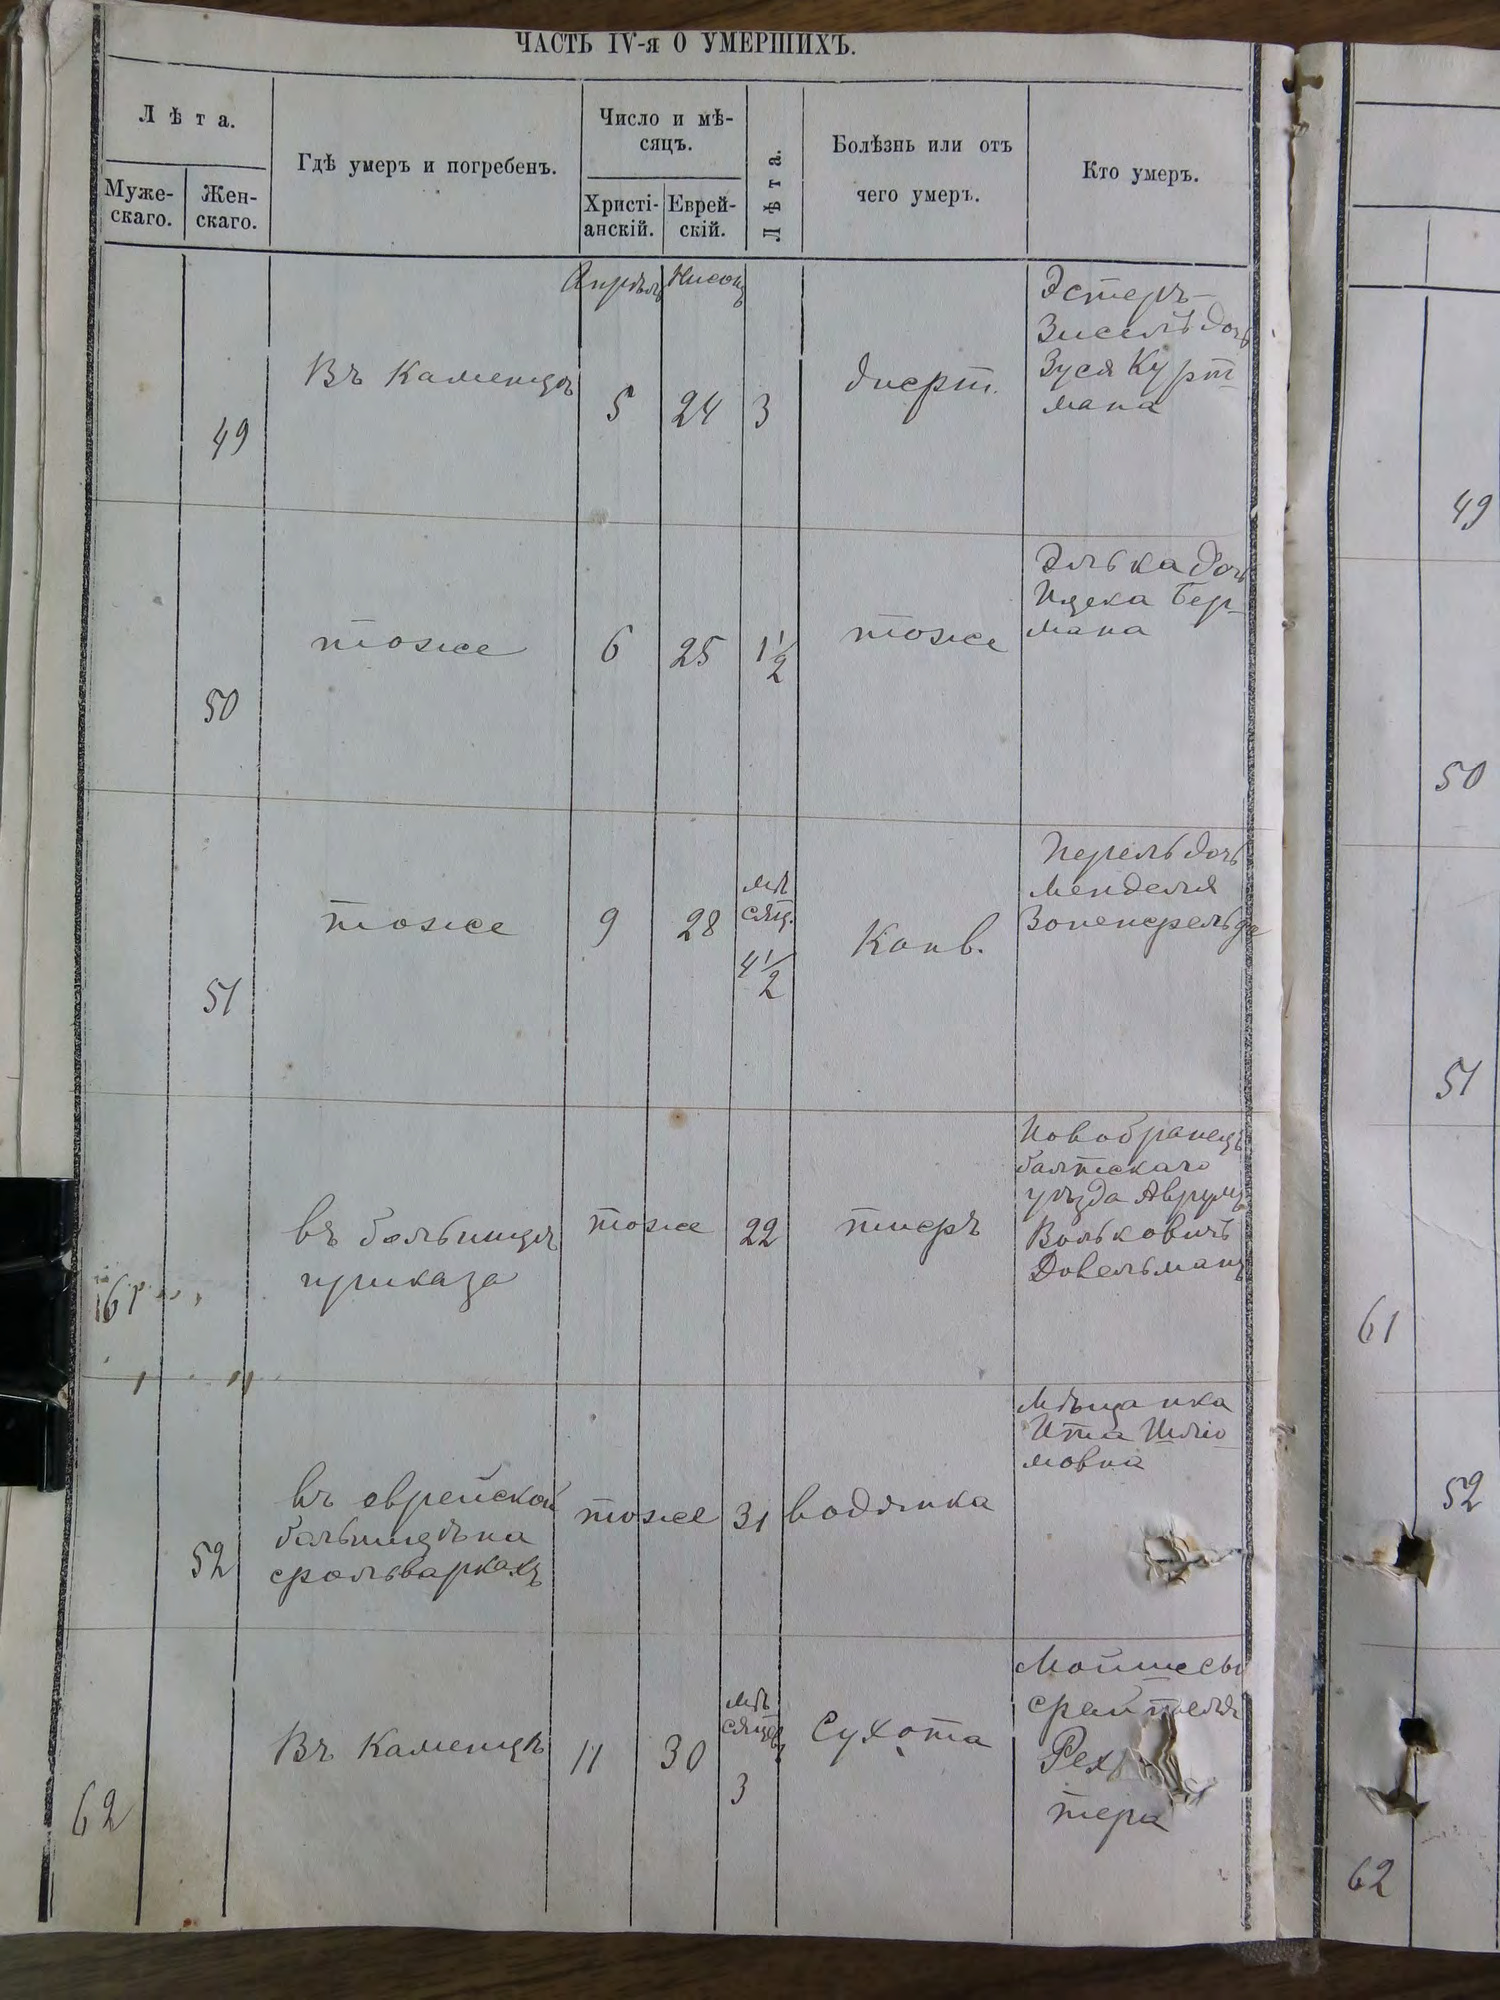 ЧАСТЬ IV-я О УМЕРШИХЪ.
Лѣта.
Муже-
скаго.
Жен-
скаго.
Гдѣ умеръ и погребенъ.
Число и мѣ-
сяцъ.
Христі-
анскій.
Еврей-
скій.
Лѣта.
Болѣзнь или отъ
чего умеръ.
Кто умеръ.
Апрѣль
Нисонъ
49
Въ Каменцѣ
5
24
3
диерт.
Эстеръ-
Зисель дочь
Зуся Курт-
мана
49
50
тоже
6
25
1 1/2
тоже
Элька дочь
Ицека Бер-
мана
50
51
тоже
9
28
мѣ
сяц.
4 1/2
Конв.
Перель дочь
Менделя
Зоненфельда
51
въ больницѣ
приказа
тоже
22
тифъ
Новобранецъ
балтскаго
уѣзда Аврумъ
Вольковичъ
Довельманъ
61
52
въ еврейской
больницѣ на
фольваркахъ
тоже
31
водянка
Мѣщанка
Итта Шліо-
мовна
52
62
Въ Каменцѣ
11
30
мѣ
сяцевъ
3
Сухота
Мойше сы
Рех
тера
62